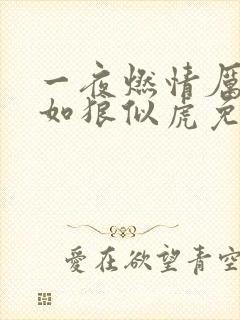 一夜燃情厲
如狼似虎免
愛在欲望青空